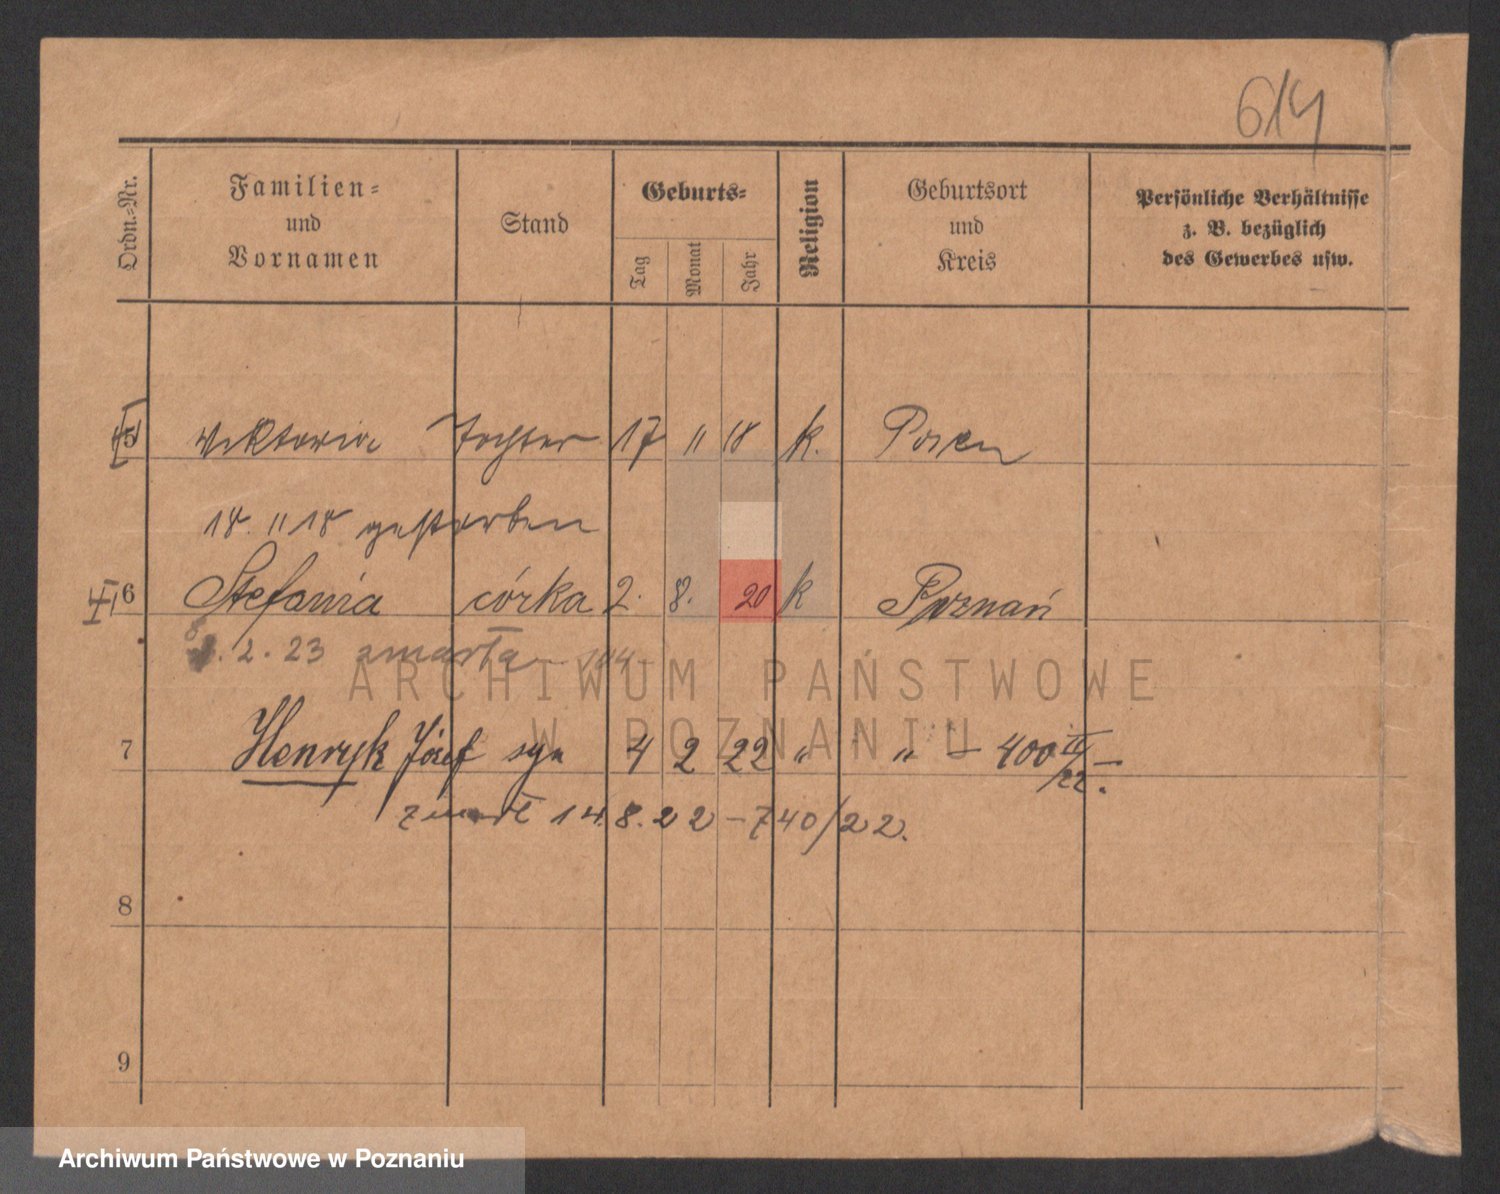 614
Ordn.-Nr.
Familien-
und
Vornamen
Stand
Geburts-
Tag
Monat
Jahr
Religion
Geburtsort
und
Kreis
Persönliche Verhältnisse
z. B. bezüglich
des Gewerbes usw.
5 Viktoria Tochter 17 11 18 k. Posen
18. 11 18 gestorben
6 Stefania córka 2. 8. 20 k Poznań
2. 23 zmarła
7 Henryk Józef syn 4 2 22 " " – 400 /22.
zmarł 14. 8. 22 – 740/22.
8
9
ARCHIWUM PAŃSTWOWE
W POZNANIU
Archiwum Państwowe w Poznaniu